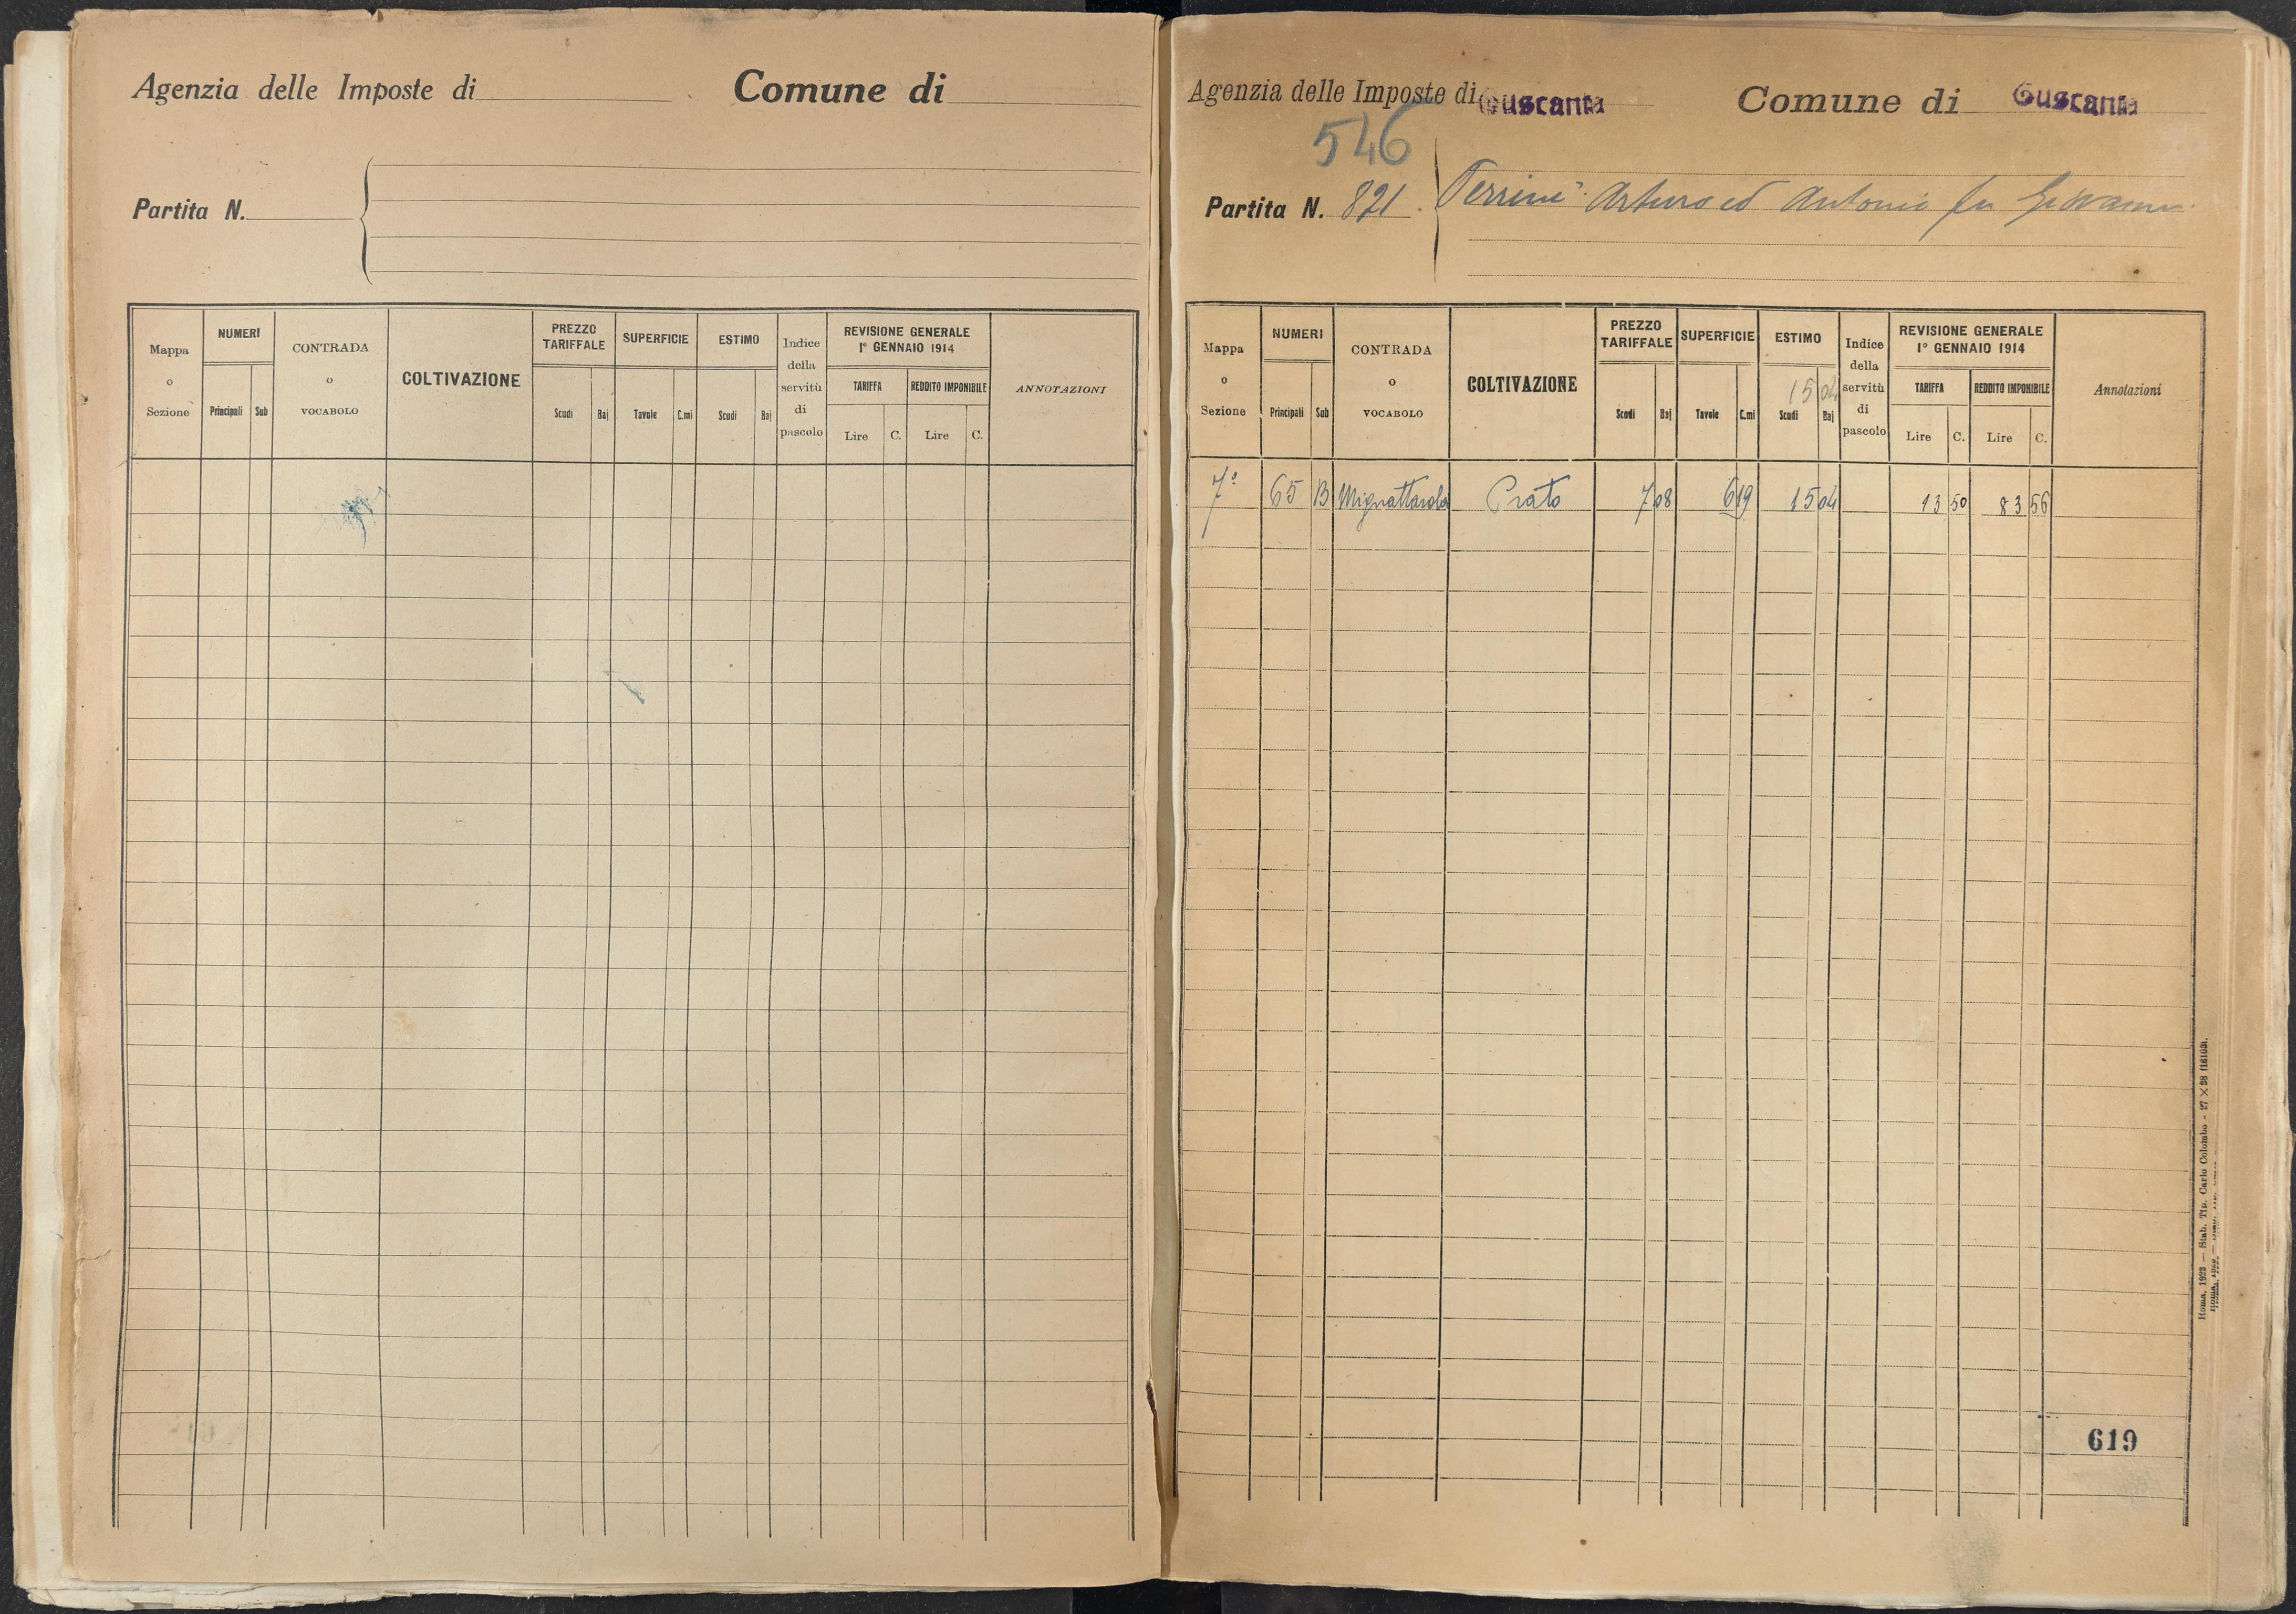 Agenzia delle Imposte di Comune di
Partita N.
Mappa o Sezione
NUMERI
Principali Sub
CONTRADA o VOCABOLO
COLTIVAZIONE
PREZZO TARIFFALE
Scudi Baj
SUPERFICIE
Tavole C.mi
ESTIMO
Scudi Baj
Indice della servitù di pascolo
REVISIONE GENERALE
1° GENNAIO 1914
TARIFFA
Lire C.
REDDITO IMPONIBILE
Lire C.
ANNOTAZIONI
Agenzia delle Imposte di Tuscania Comune di Tuscania
546
Partita N. 821 Perrini Arturo ed Antonio fu Giovanni
Mappa o Sezione
NUMERI
Principali Sub
CONTRADA o VOCABOLO
COLTIVAZIONE
PREZZO TARIFFALE
Scudi Baj
SUPERFICIE
Tavole C.mi
ESTIMO
15 04
Scudi Baj
Indice della servitù di pascolo
REVISIONE GENERALE
1° GENNAIO 1914
TARIFFA
Lire C.
REDDITO IMPONIBILE
Lire C.
Annotazioni
7ª 65 B Mignattarola Prato 7 08 6 19 15 04 13 50 83 56
619
Roma, 1923 — Stab. Tip. Carlo Colombo - 27 × 38 (16103).